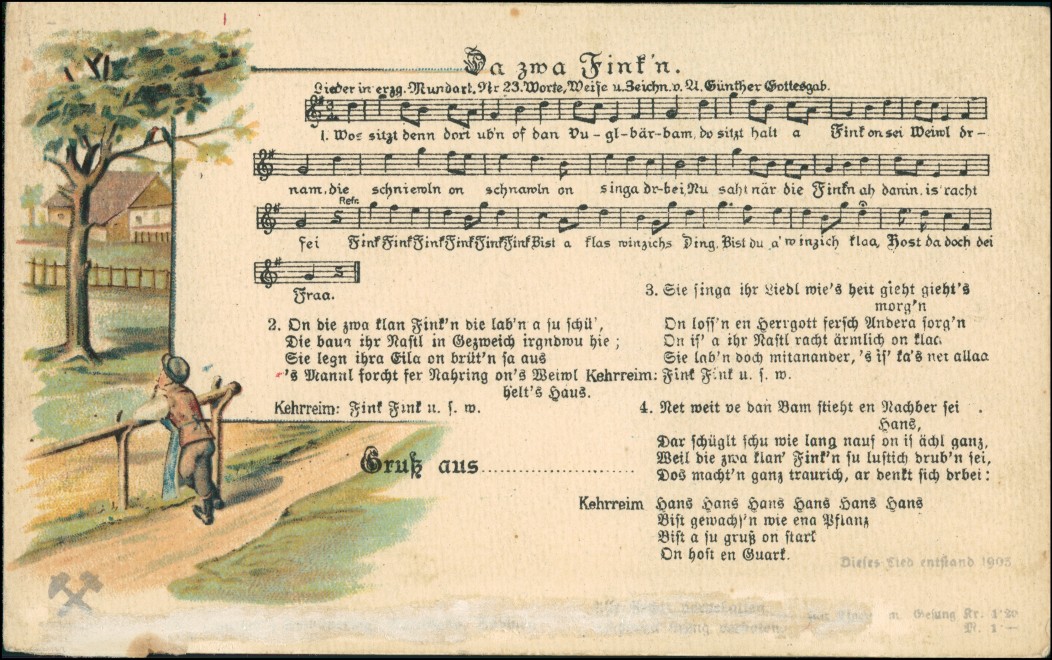 Da zwa Fink'n.
Lieder in erzg. Mundart. Nr 23. Worte, Weise u. Zeichn. v. A. Günther Gottesgab.
1. Wos sitzt denn dort ub'n of dan Vu-gl-bär-bam, do sitzt halt a Fink on sei Weiwl dr-
nam, die schniewln on schnawln on singa dr-bei, Nu saht när die Finkn ah danin, is racht
Refr.
sei Fink Fink Fink Fink Fink Fink Bist a klas winzichs Ding. Bist du a' winzich klaa, Host da doch dei
Fraa.
2. On die zwa klan Fink'n die lab'n a su schü',
Die baun ihr Nastl in Gezweich irgndwu hie;
Sie legn ihra Eila on brüt'n sa aus
's Mannl forcht fer Nahring on's Weiwl
helt's Haus.
Kehrreim: Fink Fink u. s. w.
3. Sie singa ihr Liedl wie's heit gieht gieht's
morg'n
On loss'n en Herrgott fersch Andera sorg'n
On is' a ihr Nastl racht ärmlich on klaa
Sie lab'n doch mitanander, 's is' ka's net allaa
Kehrreim: Fink Fink u. s. w.
4. Net weit ve dan Bam stieht en Nachber sei
Hans,
Dar schüglt schu wie lang nauf on is ächl ganz,
Weil die zwa klan' Fink'n su lustich drub'n sei,
Dos macht'n ganz traurich, ar denkt sich drbei:
Kehrreim Hans Hans Hans Hans Hans Hans
Bist gewachs'n wie ena Pflanz
Bist a su gruß on stark
On host en Quark.
Gruß aus
Dieses Lied entstand 1905
m. Gesang Kr. 1·20
M. 1·—